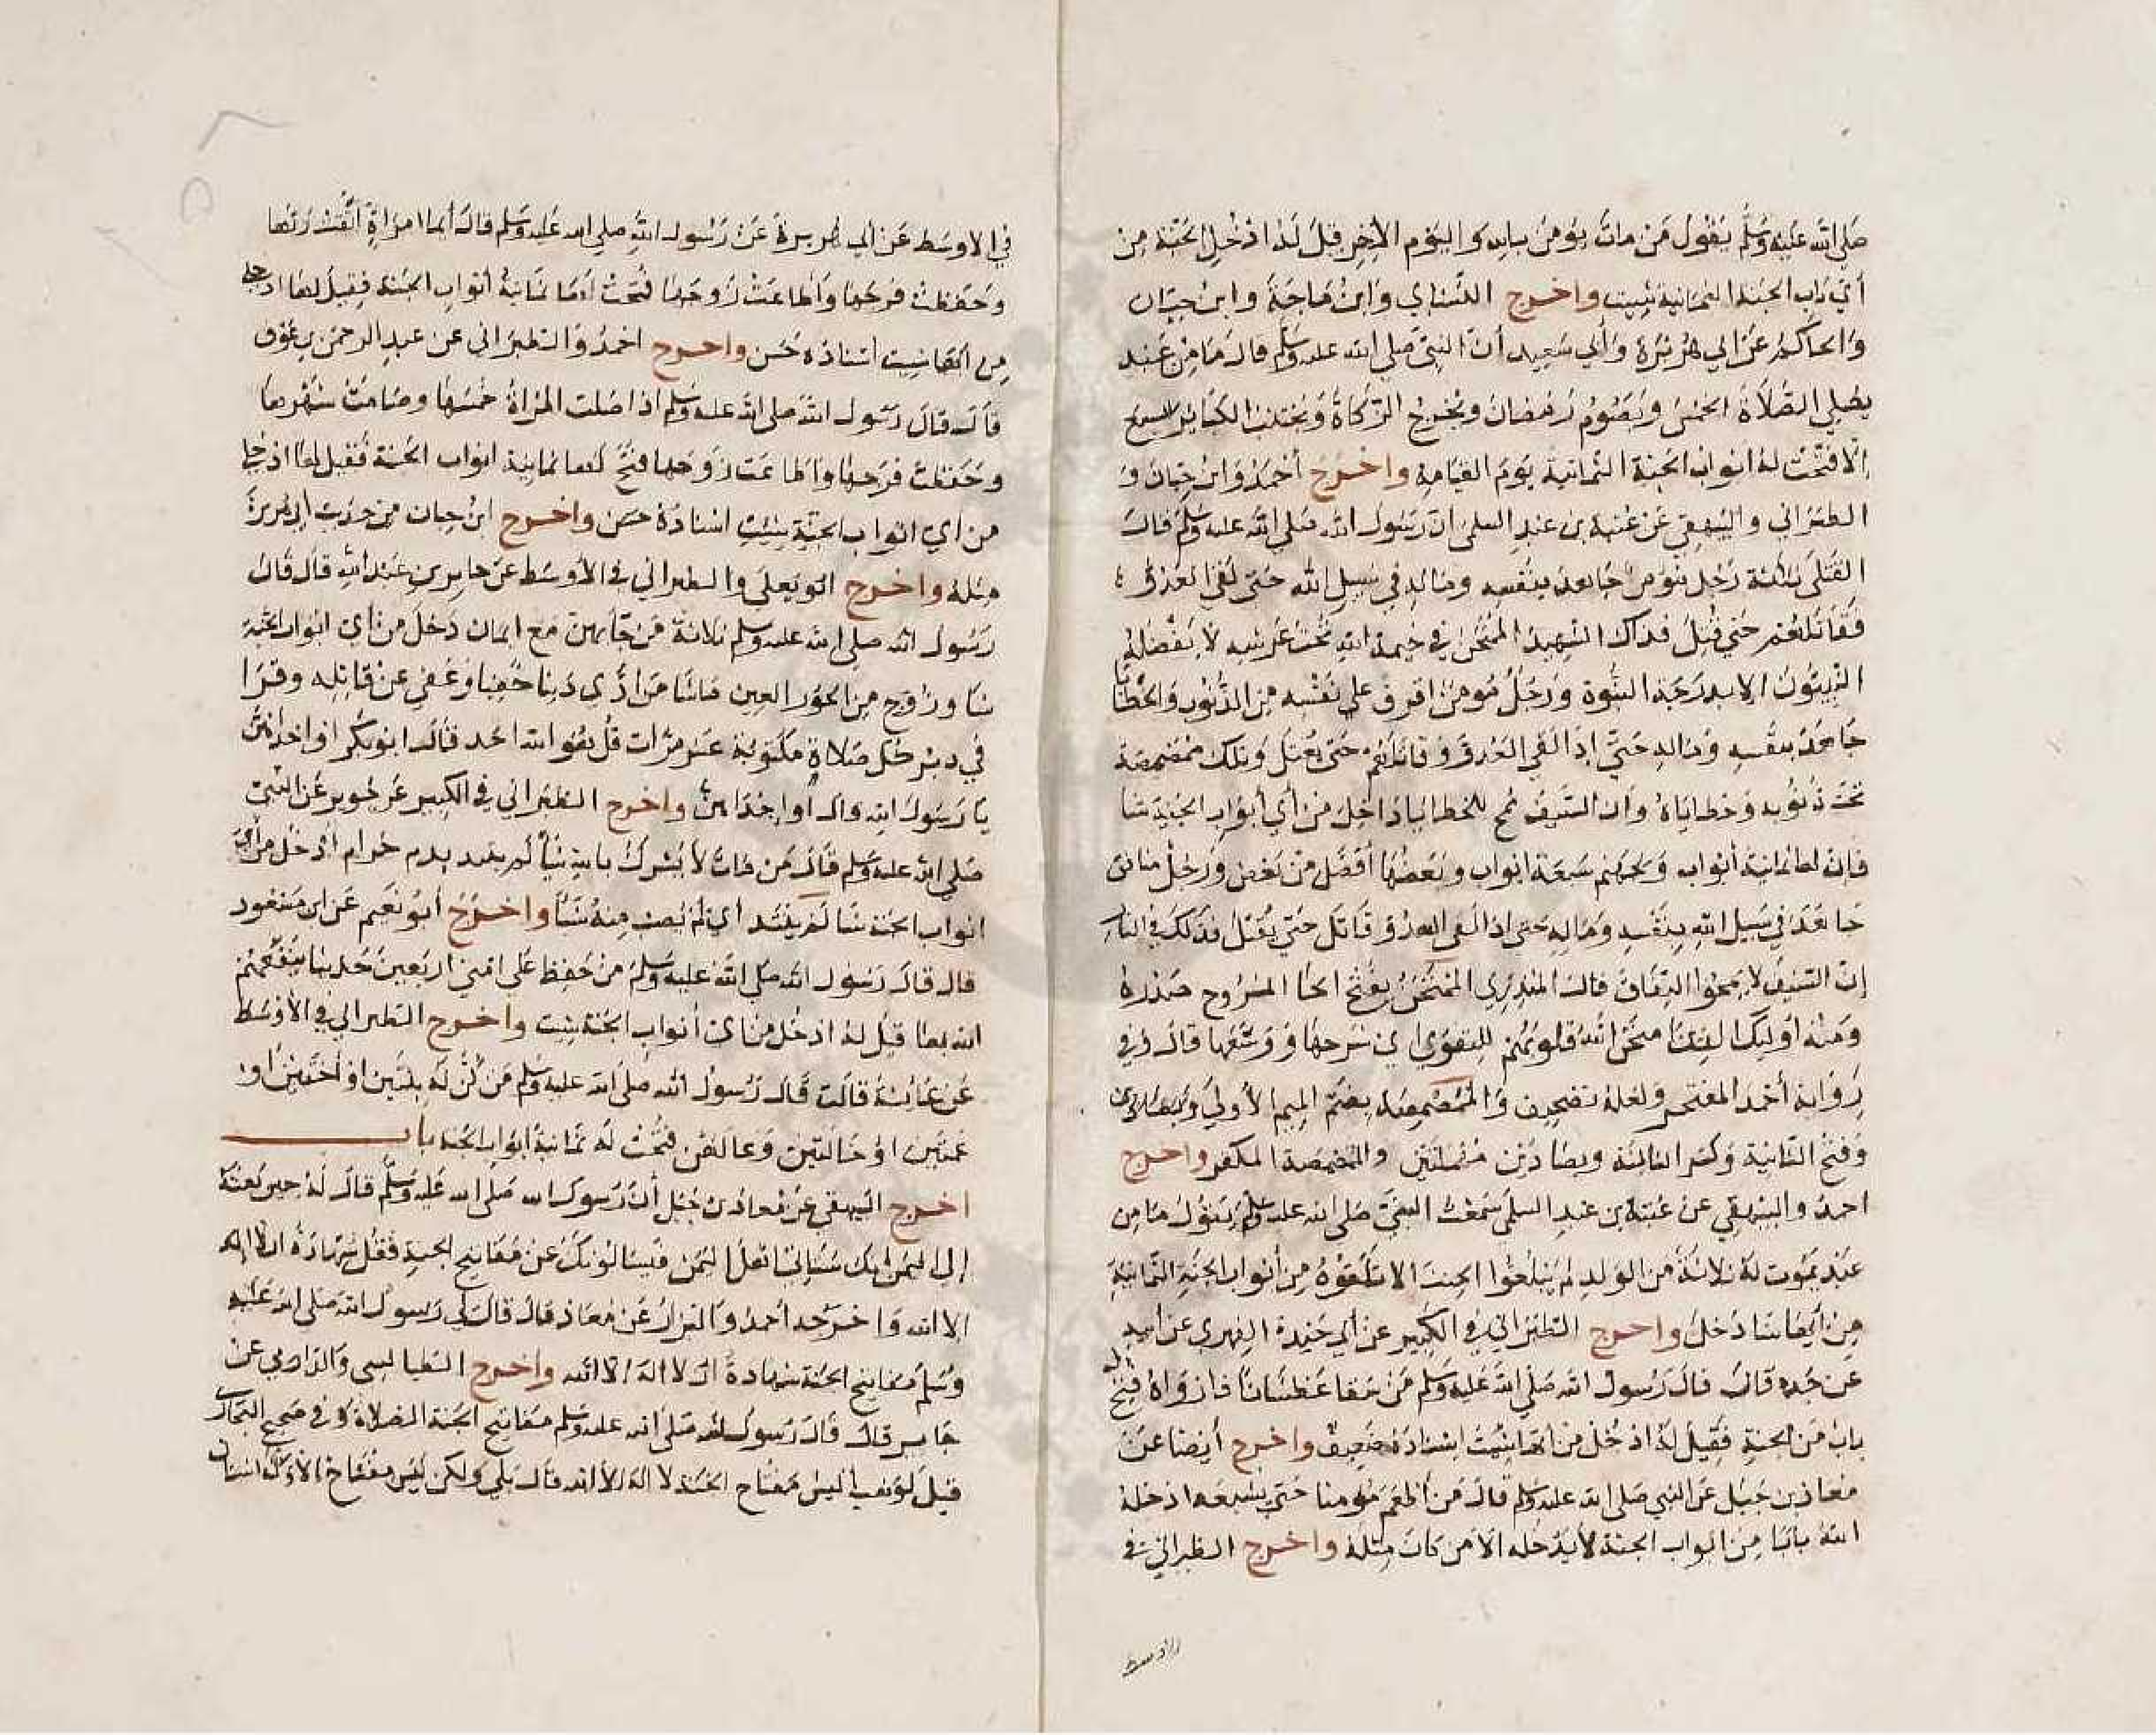 صلى الله عليه وسلم يقول من مات يؤمن بالله واليوم الآخر قيل له ادخل الجنة من
أي باب الجنة الثمانية شيت واخرج النساي وابن ماجة وابن حبان
والحاكم عن ابي هريرة وأبي سعيد أن النبي صلى الله عليه وسلم قال ما من عبد
يصلي الصلاة الخمس ويصوم رمضان ويخرج الزكاة ويجتنب الكباير السبع
إلا فتحت له ابواب الجنة الثمانية يوم القيامة واخرج أحمد وابن حبان و
الطبراني والبيهقي عن عتبة بن عبد السلمي ان رسول الله صلى الله عليه وسلم قال
القتلى ثلاثة رجل مؤمن جاهد بنفسه وماله في سبيل الله حتى لقي العدو
فقاتلهم حتى قتل فذاك الشهيد الممتحن في خيمة الله تحت عرشه لا يفضله
النبيون الا بدرجة النبوة ورجل مومن اقرف على نفسه من الذنوب والخطايا
جاهد بنفسه وماله حتى إذا لقي العدو وقاتلهم حتى يقتل وتلك ممصمصة
تحت ذنوبه وخطاياه وان السيف مح للخطايا داخل من أي أبواب الجنة شا
فان لها ثمانية أبواب ولجهنم سبعة ابواب وبعضها أفضل من بعض ورجل منافق
جاهد في سبيل الله بنفسه وماله حتى اذا لقي العدو قاتل حتى يقتل فذلك في النار
إن السيف لا يمحوا النفاق قال المنذري الممتحن بفتح الحا المشروح صدره
ومنه أوليك الذين امتحن الله قلوبهم للتقوى اي شرحها ووسعها قال وفي
رواية أحمد المفتخر ولعله تصحيف والممصمصة بضم الميم الأولى
وفتح الثانية وكسر الثالثة وبصادين مهملتين والممصمصة المكفر واخرج
احمد والبيهقي عن عتبة بن عبد السلمي سمعت النبي صلى الله عليه وسلم يقول ما من
عبد يموت له ثلاثة من الولد لم يبلغوا الحنث الا تلقوه من أبواب الجنة الثمانية
من أيها شا دخل واخرج الطبراني في الكبير عن
عن جده قال قال رسول الله صلى الله عليه وسلم من سقا عطشانا فارواه فتح له
باب من الجنة فقيل له ادخل من اسناده ضعيف واخرج أيضا عن
معاذ بن جبل عن النبي صلى الله عليه وسلم قال من أطعم مؤمنا حتى يشبعه ادخله
الله بابا من ابواب الجنة لا يدخله الا من كان مثله واخرج الطبراني في
الاوسط
في الاوسط عن ابي هريرة عن رسول الله صلى الله عليه وسلم قال أيما امراة اتقت ربها
وحفظت فرجها واطاعت زوجها فتحت لها ثمانية أبواب الجنة فقيل لها ادخلي
من ايها شيت اسناده حسن واخرج احمد والطبراني عن عبد الرحمن بن عوف
قال قال رسول الله صلى الله عليه وسلم اذا صلت المراة خمسها وصامت شهرها
وحفظت فرجها واطاعت زوجها فتح لها ثمانية ابواب الجنة فقيل لها ادخلي
من اي ابواب الجنة شيت اسناده حسن واخرج ابن حبان من حديث ابي هريرة
مثله واخرج ابو يعلى والطبراني في الأوسط عن جابر بن عبد الله قال قال
رسول الله صلى الله عليه وسلم ثلاثة من جا بهن مع ايمان دخل من أي ابواب الجنة
شا وزوج من الحور العين ما شا من ادى دينا خفيا وعفى عن قاتله وقرا
في دبر كل صلاة مكتوبة عشر مرات قل هو الله احد قال ابو بكر او احداهن
يا رسول الله قال أو احداهن واخرج الطبراني في الكبير عن جرير عن النبي
صلى الله عليه وسلم قال من مات لا يشرك بالله شيأ لم يتند بدم حرام أدخل من أي
ابواب الجنة شا لم يتند أي لم يصب منه شيأ واخرج أبو نعيم عن ابن مسعود
قال قال رسول الله صلى الله عليه وسلم من حفظ على امتي اربعين حديثا ينفعهم
الله بها قيل له ادخل من اي أبواب الجنة شيت واخرج الطبراني في الأوسط
عن عايشة قالت قال رسول الله صلى الله عليه وسلم من كن له بنتين او أختين او
عمتين او خالتين وعالهن فتحت له ثمانية ابواب الجنة باب
اخرج البيهقي عن معاذ بن جبل أن رسول الله صلى الله عليه وسلم قال له حين بعثه
إلى اليمن انك ستاتي اهل اليمن فيسالونك عن مفاتيح الجنة فقل شهادة ان لا إله
الا الله واخرجه أحمد والبزار عن معاذ قال قال لي رسول الله صلى الله عليه
وسلم مفاتيح الجنة شهادة ان لا اله الا الله واخرج الطيالسي والدارمي عن
جابر قال قال رسول الله صلى الله عليه وسلم مفاتيح الجنة الصلاة وفي صحيح البخاري
قيل لوهب أليس مفتاح الجنة لا اله الا الله قال بلى ولكن ليس مفتاح الا وله اسنان